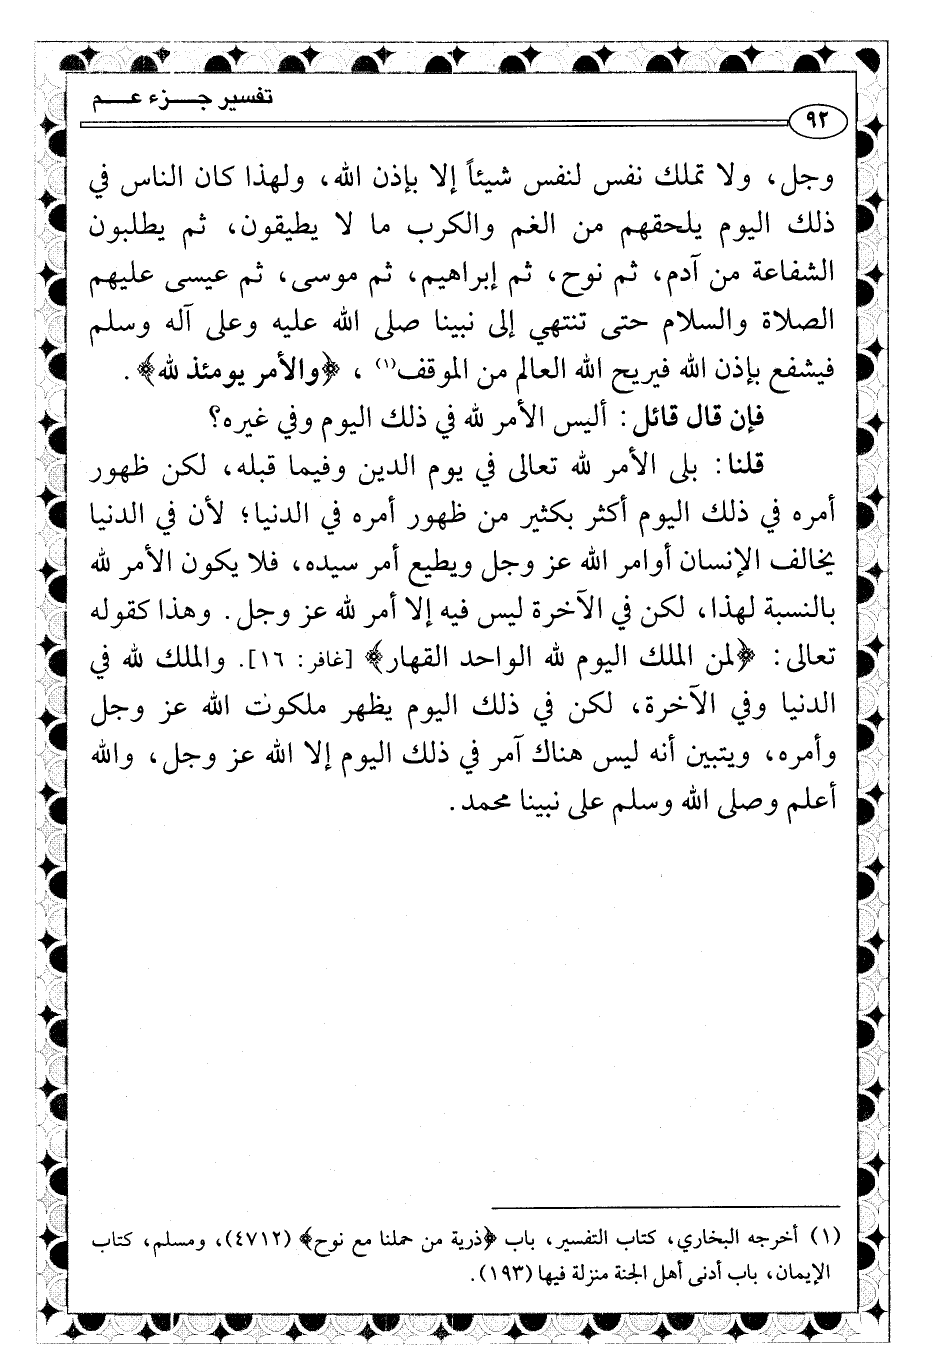 تفسير جـــزء عـــم
٩٢
وجل، ولا تملك نفس لنفس شيئاً إلا بإذن الله، ولهذا كان الناس في
ذلك اليوم يلحقهم من الغم والكرب ما لا يطيقون، ثم يطلبون
الشفاعة من آدم، ثم نوح، ثم إبراهيم، ثم موسى، ثم عيسى عليهم
الصلاة والسلام حتى تنتهي إلى نبينا صلى الله عليه وعلى آله وسلم
فيشفع بإذن الله فيريح الله العالم من الموقف(١) ، ﴿والأمر يومئذ لله﴾.
فإن قال قائل: أليس الأمر لله في ذلك اليوم وفي غيره؟
قلنا: بلى الأمر لله تعالى في يوم الدين وفيما قبله، لكن ظهور
أمره في ذلك اليوم أكثر بكثير من ظهور أمره في الدنيا؛ لأن في الدنيا
يخالف الإنسان أوامر الله عز وجل ويطيع أمر سيده، فلا يكون الأمر لله
بالنسبة لهذا، لكن في الآخرة ليس فيه إلا أمر لله عز وجل. وهذا كقوله
تعالى: ﴿لمن الملك اليوم لله الواحد القهار﴾ [غافر: ١٦]. والملك لله في
الدنيا وفي الآخرة، لكن في ذلك اليوم يظهر ملكوت الله عز وجل
وأمره، ويتبين أنه ليس هناك آمر في ذلك اليوم إلا الله عز وجل، والله
أعلم وصلى الله وسلم على نبينا محمد.
(١) أخرجه البخاري، كتاب التفسير، باب ﴿ذرية من حملنا مع نوح﴾ (٤٧١٢)، ومسلم، كتاب
الإيمان، باب أدنى أهل الجنة منزلة فيها (١٩٣).